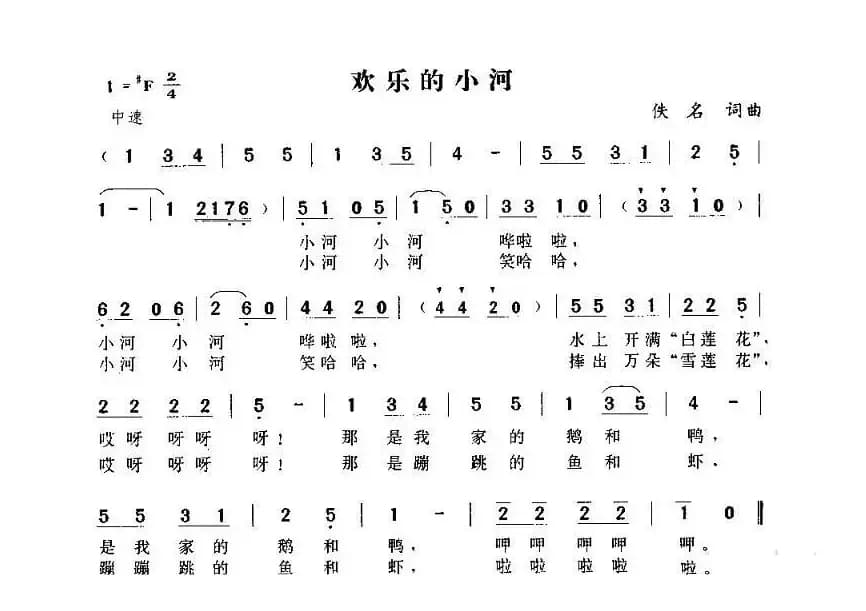 欢乐的小河
1=#F 2/4
中速
佚名 词曲
( 1 34 | 5 5 | 1 35 | 4 - | 55 31 | 2 5 |
1 - | 1 2176 ) | 51 05 | 1 50 | 33 10 | ( 33 10 ) |
小河 小河 哗啦 啦,
小河 小河 笑哈 哈,
62 06 | 2 60 | 44 20 | ( 44 20 ) | 55 31 | 22 5 |
小河 小河 哗啦 啦, 水上 开满“白莲 花”,
小河 小河 笑哈 哈, 捧出 万朵“雪莲 花”,
22 22 | 5 - | 1 34 | 5 5 | 1 35 | 4 - |
哎呀 呀呀 呀! 那 是我 家 的 鹅 和 鸭,
哎呀 呀呀 呀! 那 是蹦 跳 的 鱼 和 虾,
55 31 | 2 5 | 1 - | 22 22 | 1 0 ‖
是我 家的 鹅 和 鸭, 呷呷 呷呷 呷。
蹦蹦 跳的 鱼 和 虾, 啦啦 啦啦 啦。